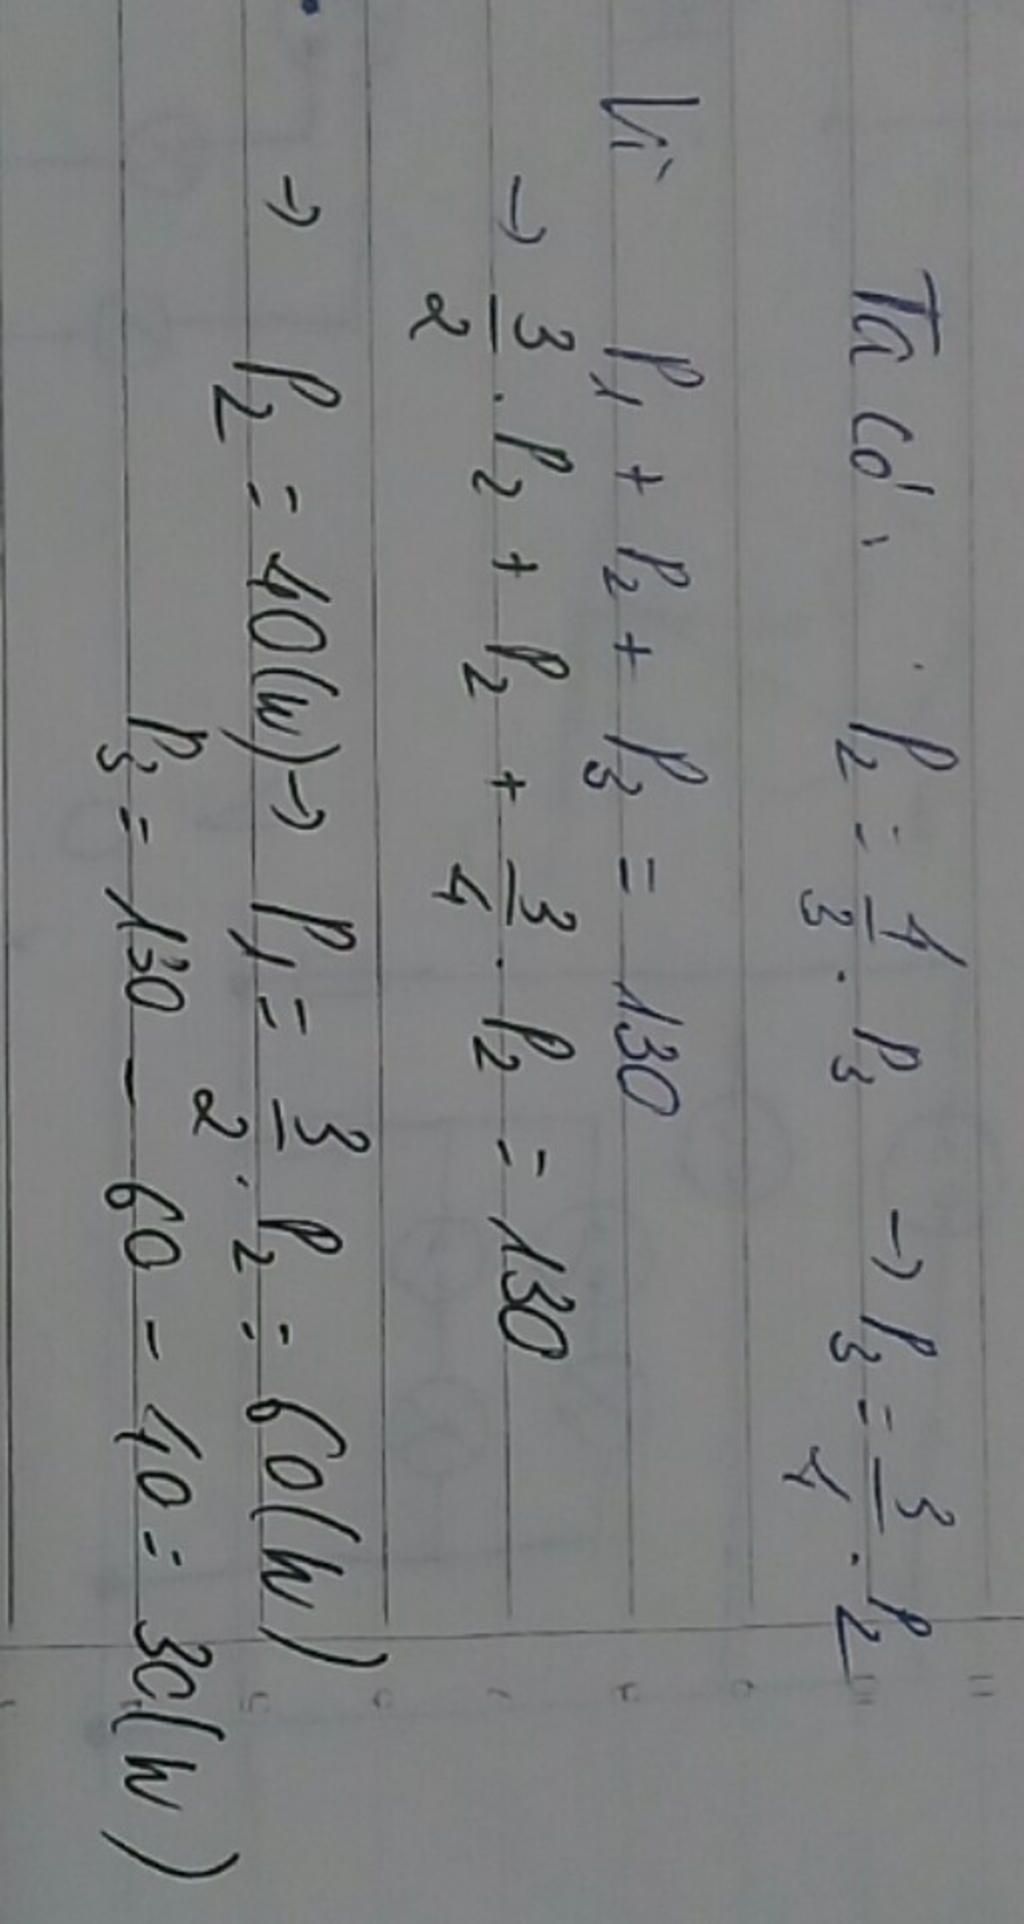 Ta có: P₂ = 4/3 . P₃ → P₃ = 3/4 . P₂
Vì P₁ + P₂ + P₃ = 130
→ 3/2 . P₂ + P₂ + 3/4 . P₂ = 130
→ P₂ = 40(W) → P₁ = 3/2 . P₂ = 60(W)
P₃ = 130 - 60 - 40 = 30(W)